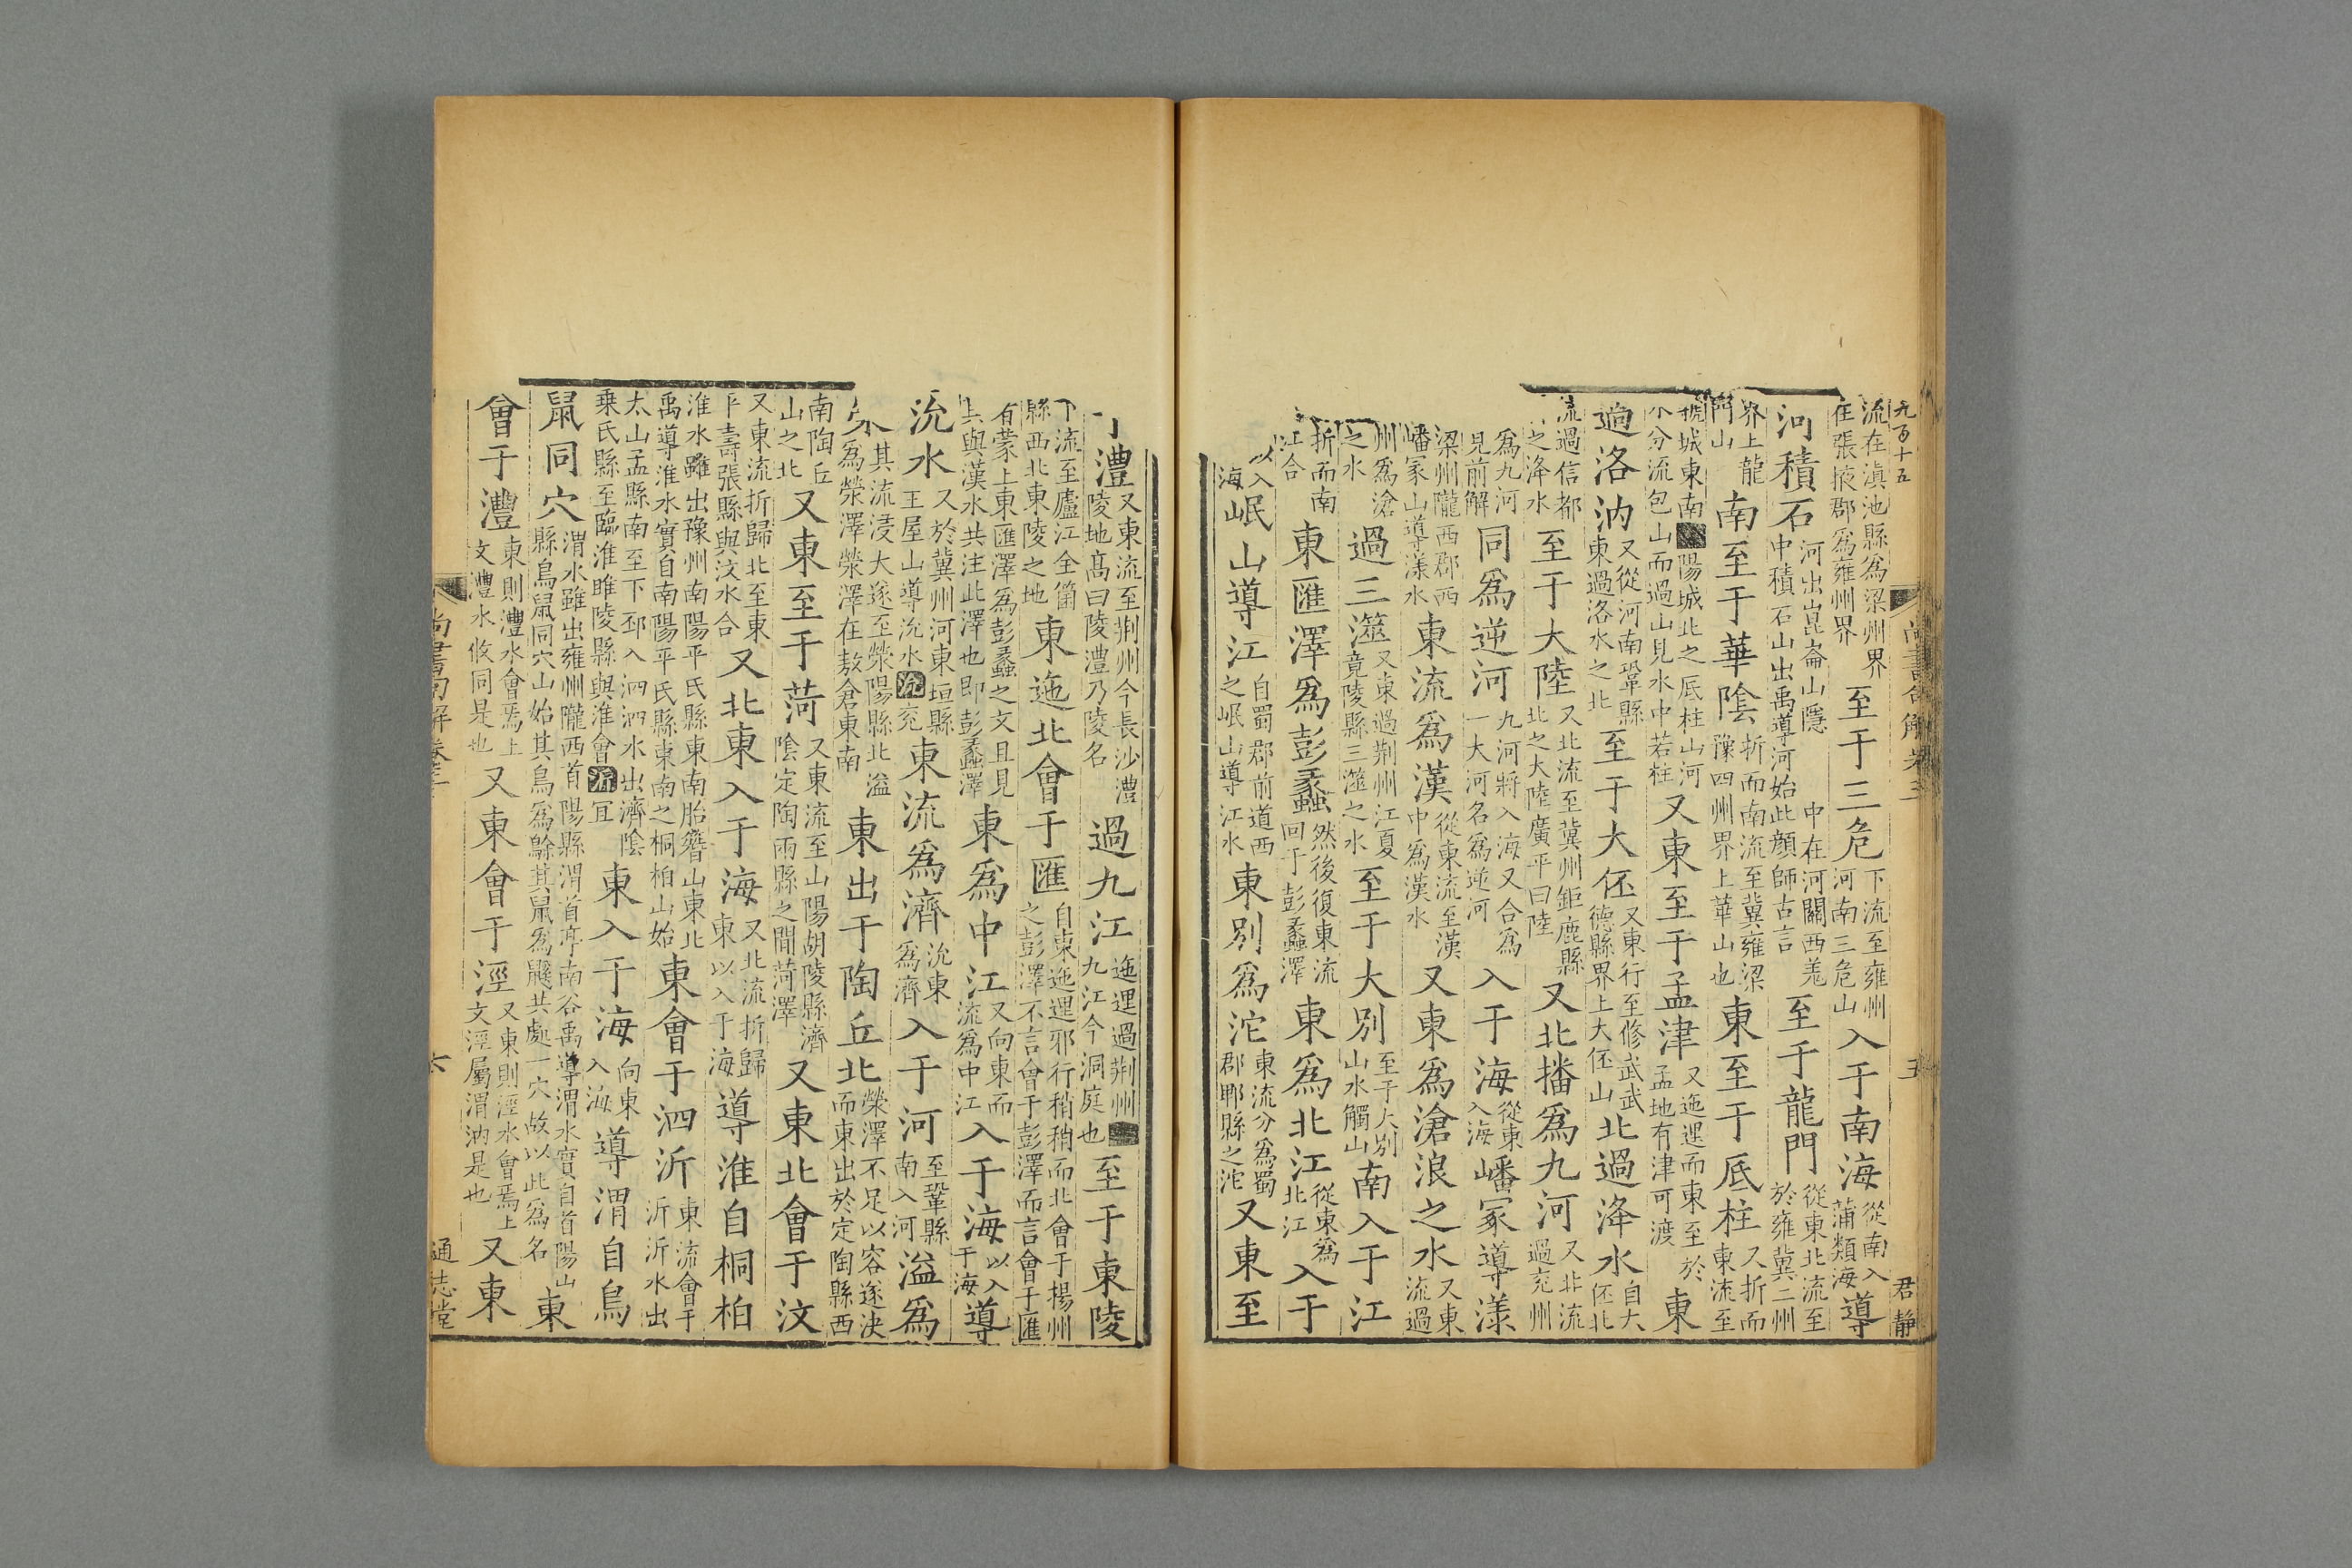 九百十五 尚書句解卷三 五 君静
流在滇池縣為梁州界在張掖郡為雍州界至于三危下流至雍州河南三危山入于南海從南入蒲類海導
河積石河出崑崙山隱中在河關西羌中積石山出禹導河始此顔師古言至于龍門從東北流至於雍冀二州
界上龍門山南至于華陰折而南流至冀雍梁豫四州界上華山也東至于厎柱又折而東流至
虢城東南陽城北之厎柱山河水分流包山而過山見水中若柱又東至于孟津又迤邐而東至於孟地有津可渡東
過洛汭又從河南鞏縣東過洛水之北至于大伾又東行至修武武德縣界上大伾山北過洚水自大伾北
流過信都之洚水至于大陸又北流至冀州鉅鹿縣北之大陸廣平曰陸又北播爲九河又北流過兖州
爲九河見前解同爲逆河九河將入海又合爲一大河名爲逆河入于海從東入海嶓冢導漾
梁州隴西郡西嶓冢山導漾水東流爲漢從東流至漢中爲漢水又東爲滄浪之水又東流過
州爲滄之水過三澨又東過荆州江夏竟陵縣三澨之水至于大別至于大別山水觸山南入于江
折而南江合東匯澤爲彭蠡然後復東流回于彭蠡澤東爲北江從東爲北江入于
以入海岷山導江自蜀郡前道西之岷山導江水東別爲沱東流分爲蜀郡郫縣之沱又東至
于澧又東流至荆州今長沙澧陵地髙曰陵澧乃陵名過九江迤邐過荆州九江今洞庭也至于東陵
下流至廬江全箇縣西北東陵之地東迤北會于匯自東迤邐邪行稍稍而北會于楊州之彭澤不言會于彭澤而言會于匯
有蒙上東匯澤爲彭蠡之文且見與漢水共注此澤也即彭蠡澤東爲中江又向東而流爲中江入于海以入于海導
沇水又於冀州河東垣縣王屋山導沇水沇兖東流爲濟沇東爲濟入于河至鞏縣南入河溢爲
其流浸大遂至滎陽縣北溢爲滎澤滎澤在敖倉東南東出于陶丘北滎澤不足以容遂決而東出於定陶縣西
南陶丘山之北又東至于菏又東流至山陽胡陵縣濟陰定陶兩縣之間菏澤又東北會于汶
又東流折歸北至東平壽張縣與汶水合又北東入于海又北流折歸東以入于海導淮自桐柏
淮水雖出豫州南陽平氏縣東南胎簪山東北禹導淮水實自南陽平氏縣東南之桐柏山始東會于泗沂東流會于沂沂水出
太山孟縣南至下邳入泗泗水出濟陰乘氏縣至臨淮睢陵縣與淮會沂宜東入于海向東入海導渭自鳥
鼠同穴渭水雖出雍州隴西首陽縣渭首亭南谷禹導渭水實自首陽山縣鳥鼠同穴山始其鳥爲鵌其鼠爲鼵共處一穴故以此爲名東
會于灃東則灃水會焉上文灃水攸同是也又東會于涇又東則涇水會焉上文涇屬渭汭是也又東
尚書句解卷三 六 通志堂